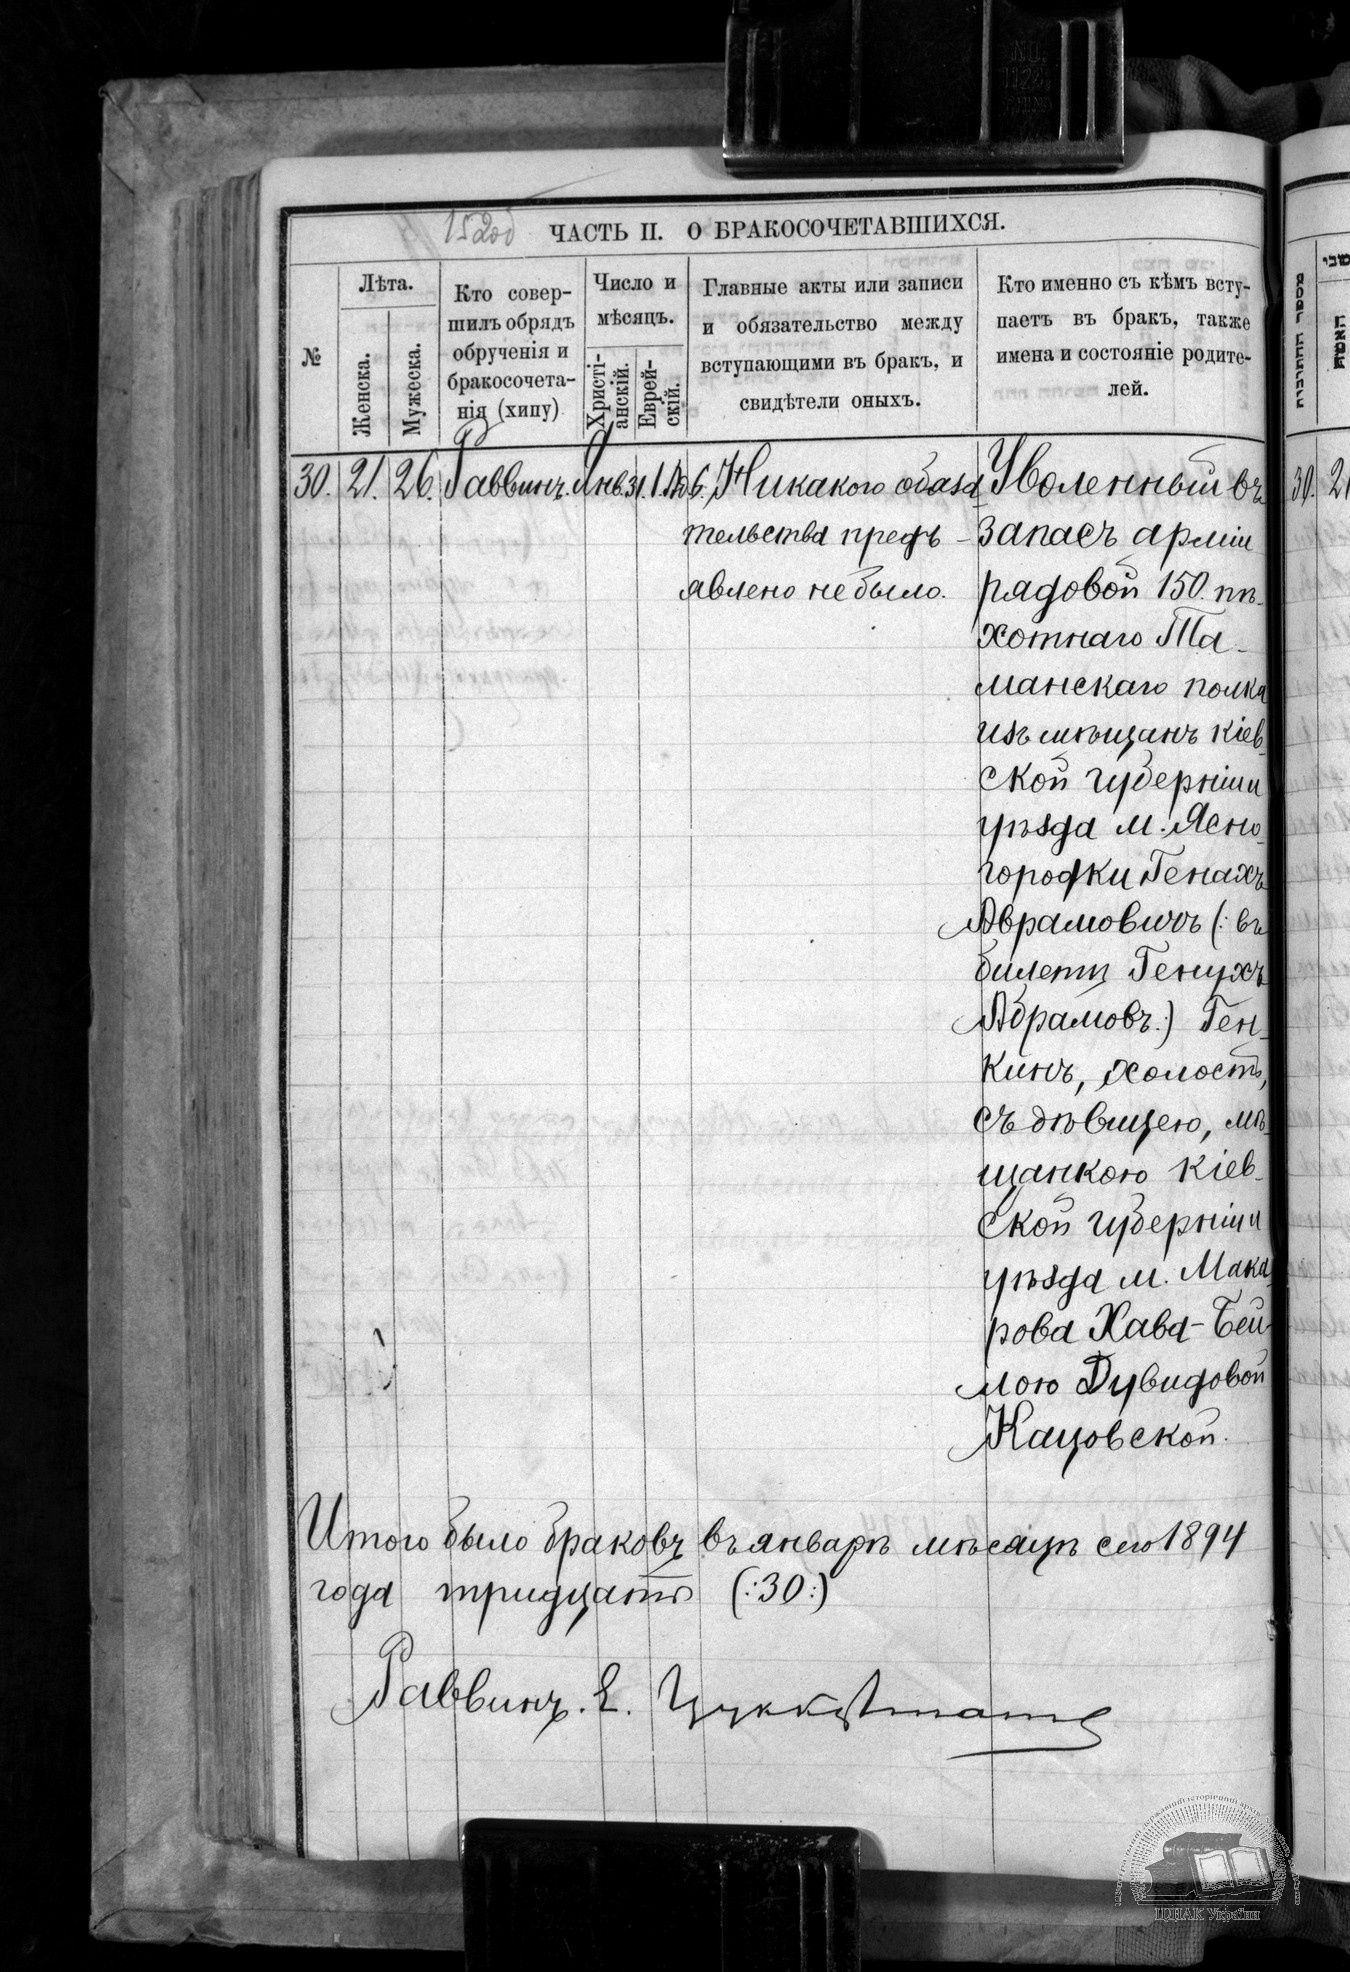 152об
ЧАСТЬ II. О БРАКОСОЧЕТАВШИХСЯ.
№
Лѣта.
Женска.
Мужеска.
Кто совер-
шилъ обрядъ
обрученія и
бракосочета-
нія (хипу)
Число и
мѣсяцъ.
Христі-
анскій.
Еврей-
скій.
Главные акты или записи
и обязательство между
вступающими въ бракъ, и
свидѣтели оныхъ.
Кто именно съ кѣмъ всту-
паетъ въ бракъ, также
имена и состояніе родите-
лей.
30. 21. 26. Раввинъ. Янв. 31. Никакого обяза
тельства предъ-
явлено не было.
Уволенный въ
запасъ арміи
рядовой 150 пѣ-
хотнаго Та-
манскаго полка
изъ мѣщанъ кіев-
ской губерніи и
уѣзда м. Ясно-
городки Генахъ
Аврамовичъ (: въ
билетѣ Генухъ
Абрамовъ:) Ген-
кинъ, холостъ,
съ дѣвицею, мѣ-
щанкою кіев-
ской губерніи и
уѣзда м. Мака
рова Хава-Бей-
лою Дувидовой
Кацовской.
Итого было браковъ въ январѣ мѣсяцѣ сего 1894
года тридцать (:30:)
Раввинъ. Е. Цуккерманъ
מספר החתונות
האשה
30. 21
ЦДІАК України